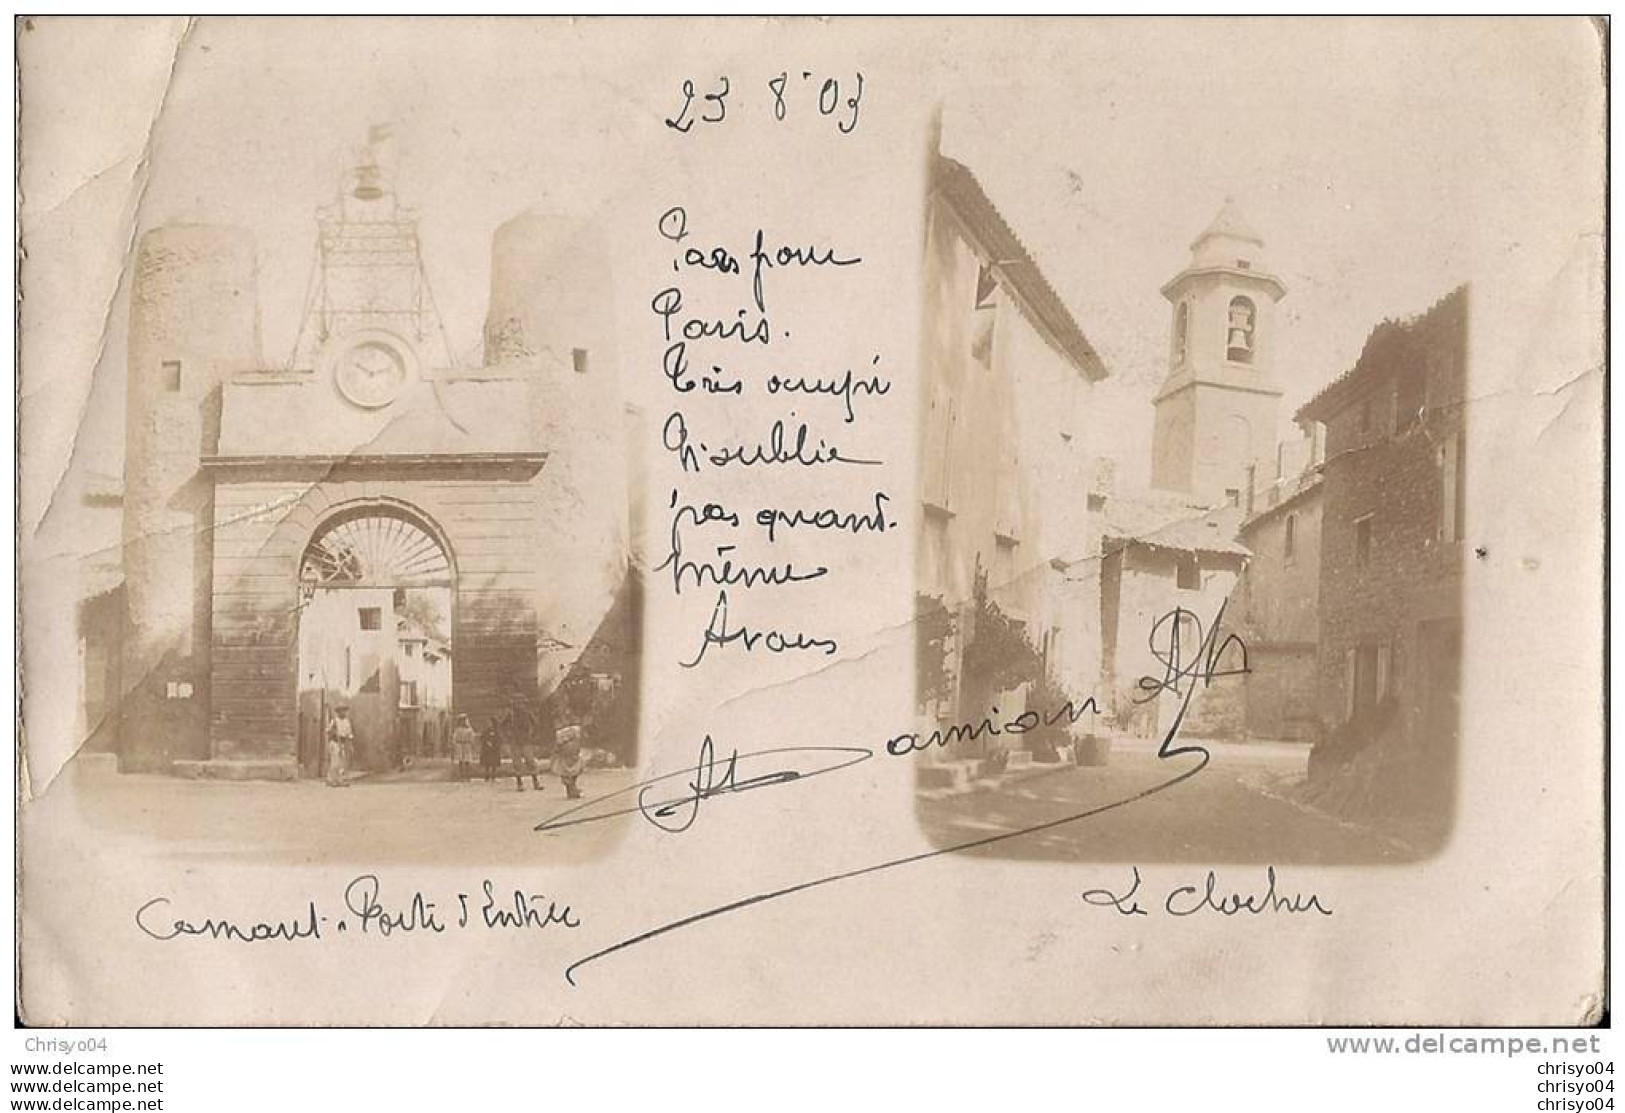 23 8 03
Pars pour
Paris.
Très occupé
N'oublie
pas quand-
même
A vous
Damian
Camaret. Porte d'Entrée
Le Clocher
Chrisyo04
www.delcampe.net
www.delcampe.net
www.delcampe.net
www.delcampe.net
chrisyo04
chrisyo04
chrisyo04